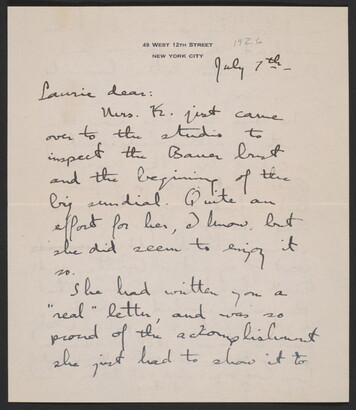 49 WEST 12TH STREET
NEW YORK CITY
1926
July 7th—
Laurie dear:
Mrs. K. just came
over to the studio to
inspect the Bauer bust
and the begining of the
big sundial. Quite an
effort for her, I know, but
she did seem to enjoy it
so.
She had written you a
"real" letter, and was so
proud of the accomplishment
she just had to show it to